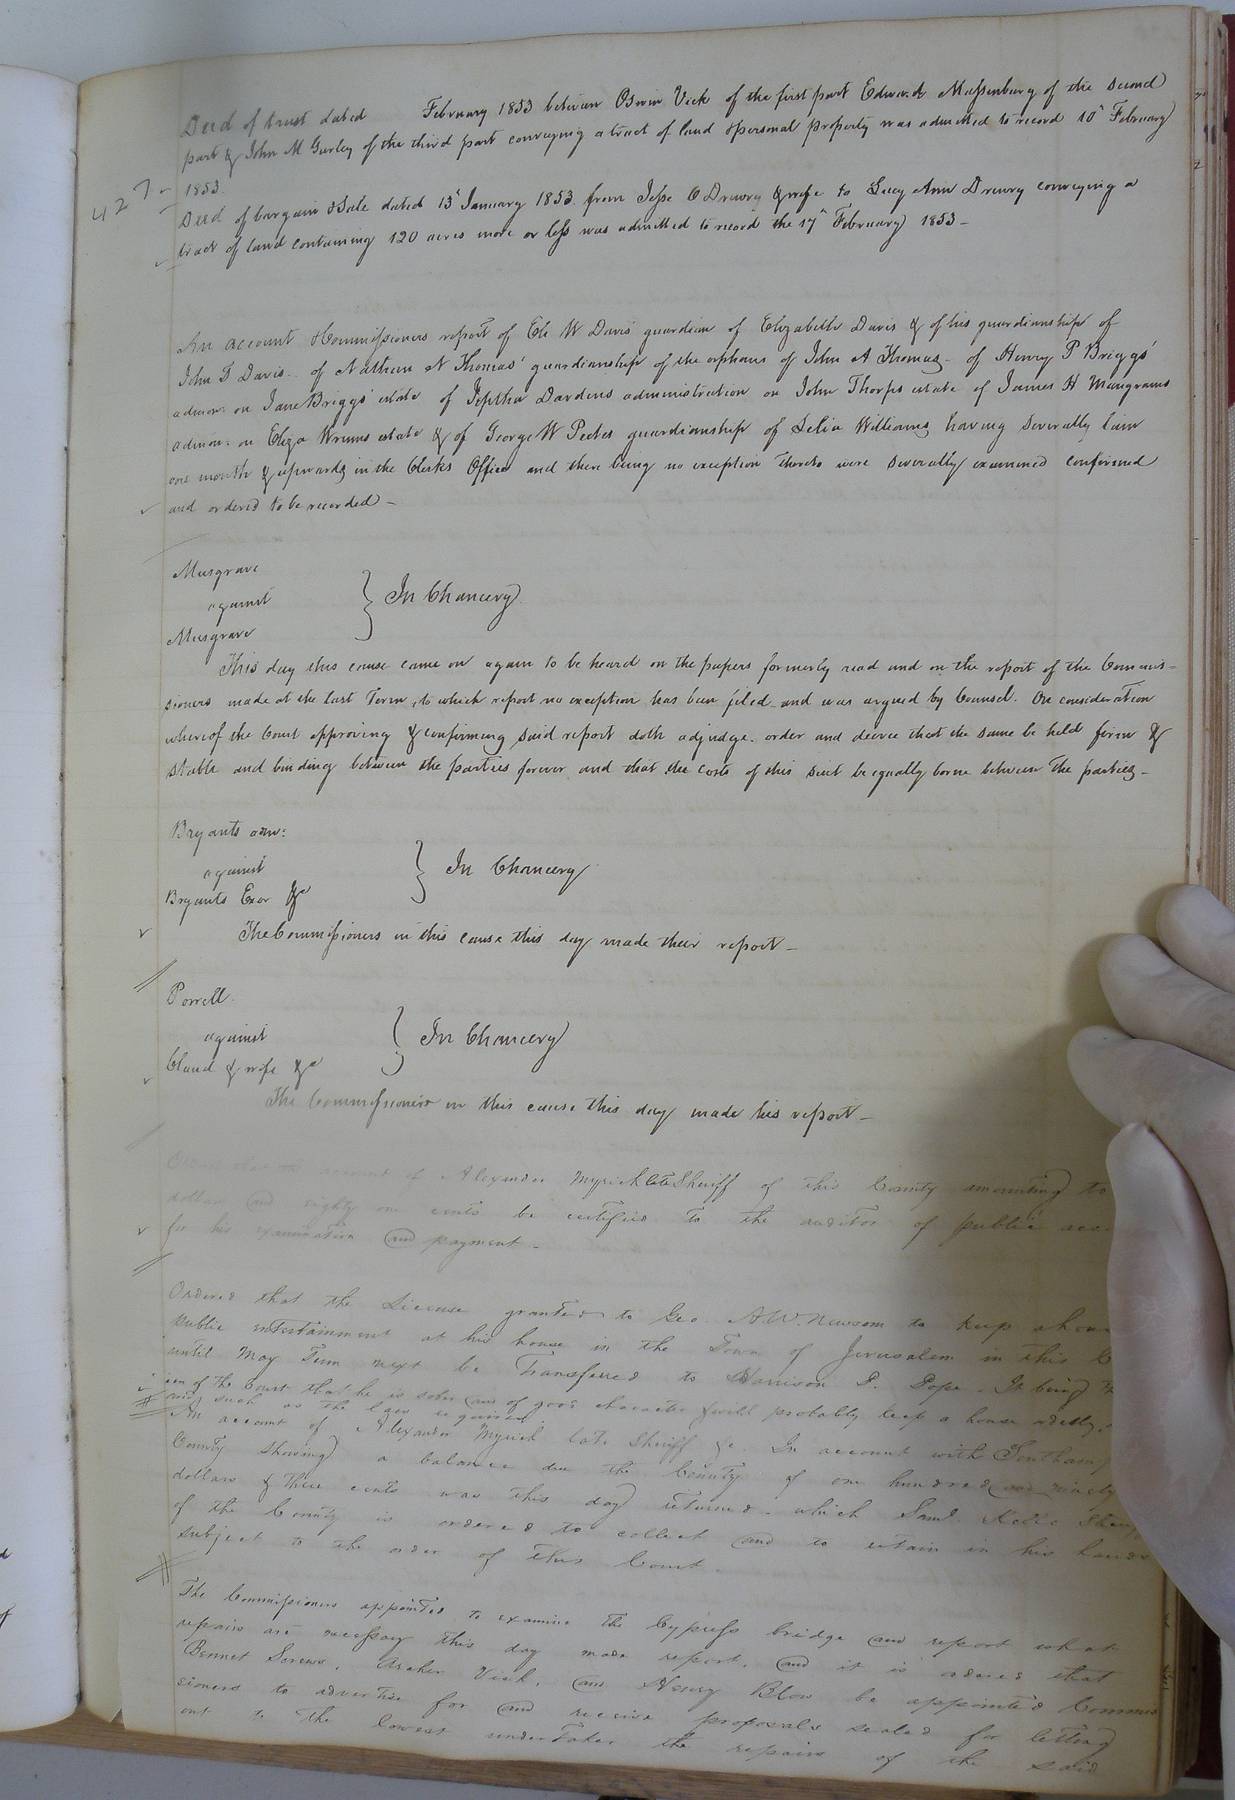 Deed of trust dated February 1853 between Orwin Vick of the first part Edward Massenburg of the second
part & John M Gurley of the third part conveying a tract of land & personal property was admitted to record 10th February
1853.
427
Deed of bargain & Sale dated 15th January 1853 from Jesse C Drewry & wife to Lucy Ann Drewry conveying a
tract of land containing 120 acres more or less was admitted to record the 17th February 1853 -
An account & Commissioners report of Eli W Davis guardian of Elizabeth Davis & of his guardianship of
John T Davis - of Nathan N Thomas' guardianship of the orphans of John A Thomas - of Henry P Briggs'
admon: on Jane Briggs' estate of Jeptha Dardens administration on John Thorps estate of James H Mangrams
admon: on Eliza estate & of George W Peetes guardianship of Delia Williams having severally lain
one month & upwards in the Clerks Office and there being no exception thereto were severally examined confirmed
and ordered to be recorded -
Musgrave
against } In Chancery
Musgrave
This day this cause came on again to be heard on the papers formerly read and on the report of the Commis-
sioners made at the last Term, to which report no exception has been filed and was argued by Counsel. On consideration
whereof the Court approving & confirming said report doth adjudge, order and decree that the same be held firm &
stable and binding between the parties forever and that the costs of this suit be equally borne between the parties -
Bryants adm:
against } In Chancery
Bryants Exor &c
The Commissioners in this cause this day made their report -
Porrell
against } In Chancery
Claud & wife &c
The Commissioner in this cause this day made his report -
account of Alexander Myrick late Sheriff of this County amounting to
dollars and eighty one cents be certified to the auditor of public
for his examination and payment -
Ordered that the License granted to Geo. A W. Newsom to keep a
public entertainment at his house in the Town of Jerusalem in this
until May Term next be Transferred to Harrison P. Pope. It being
of the Court that he is sober and of good character & will probably keep a house orderly
and such as the law requires.
An account of Alexander Myrick late Sheriff &c. In account with
County Showing a balance due the County of one hundred and ninety
dollars & three cents was this day returned which Saml. Kello
of the County is ordered to collect and to retain in his hands
subject to the order of this Court.
The Commissioners appointed to examine the Cypress bridge and report what
repairs are necessary this day made report, and it is ordered that
Bennet Screws, Archer Vick, and Henry Blow be appointed Commis
sioners to advertise for and receive proposals sealed for letting
out to the lowest undertaker the repairs of the said